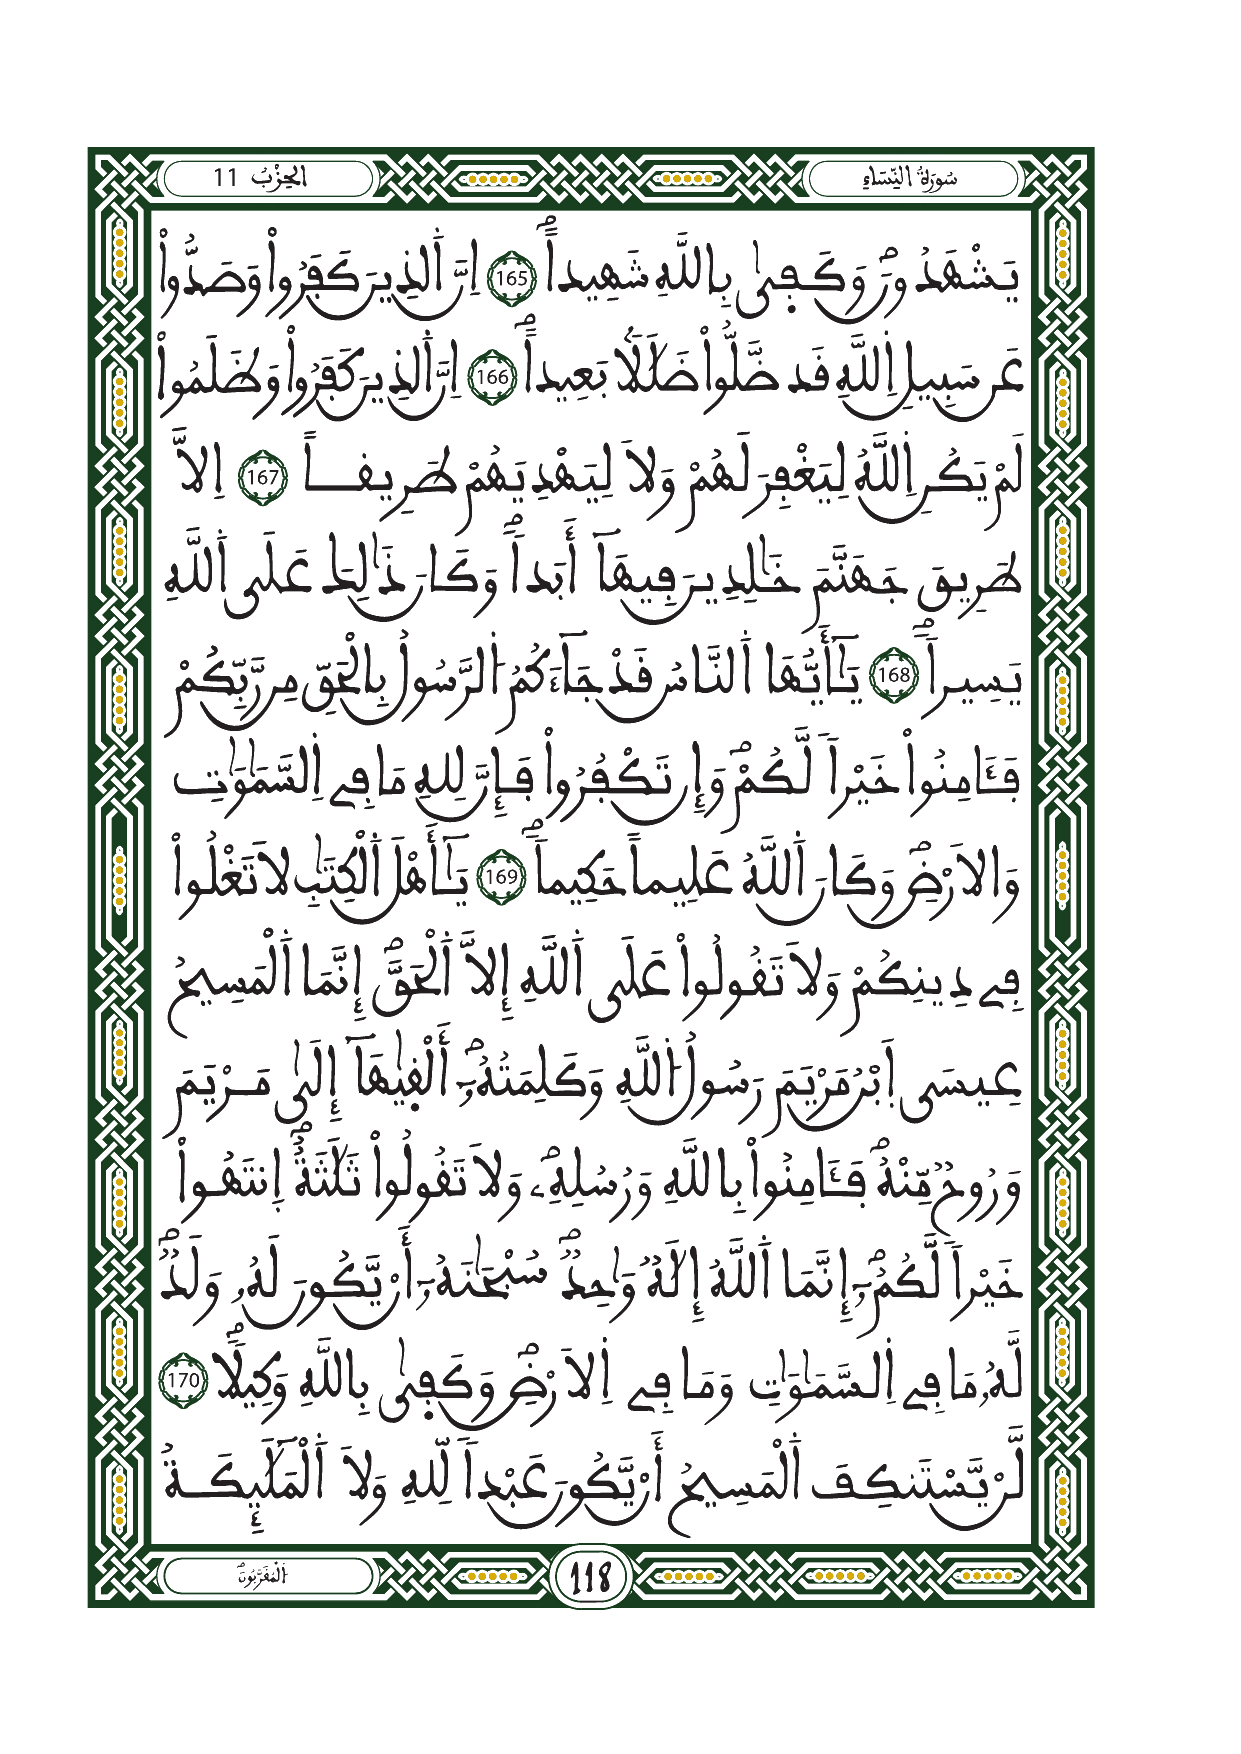 سُورَةُ النِّسَاءِ
الحِزْبُ 11
يَشْهَدُونَۖ وَكَفَىٰ بِاللَّهِ شَهِيداًۖ 165 اِنَّ اَ۬لذِينَ كَفَرُواْ وَصَدُّواْ
عَن سَبِيلِ اِ۬للَّهِ قَد ضَّلُّواْ ضَلَٰلاَۢ بَعِيداًۖ 166 اِنَّ اَ۬لذِينَ كَفَرُواْ وَظَلَمُواْ
لَمْ يَكُنِ اِ۬للَّهُ لِيَغْفِرَ لَهُمْ وَلاَ لِيَهْدِيَهُمْ طَرِيقاً 167 اِلاَّ
طَرِيقَ جَهَنَّمَ خَٰلِدِينَ فِيهَآ أَبَداٗۖ وَكَانَ ذَٰلِكَ عَلَى اَ۬للَّهِ
يَسِيراٗۖ 168 يَٰٓأَيُّهَا اَ۬لنَّاسُ قَدْ جَآءَكُمُ اُ۬لرَّسُولُ بِالْحَقِّ مِن رَّبِّكُمْ
فَـَٔامِنُواْ خَيْراٗ لَّكُمْۖ وَإِن تَكْفُرُواْ فَإِنَّ لِلهِ مَا فِے اِ۬لسَّمَٰوَٰتِ
وَالاَرْضِۖ وَكَانَ اَ۬للَّهُ عَلِيماً حَكِيماٗۖ 169 يَٰٓأَهْلَ اَ۬لْكِتَٰبِ لاَ تَغْلُواْ
فِے دِينِكُمْ وَلاَ تَقُولُواْ عَلَى اَ۬للَّهِ إِلاَّ اَ۬لْحَقَّۖ إِنَّمَا اَ۬لْمَسِيحُ
عِيسَى اَ۪بْنُ مَرْيَمَ رَسُولُ اُ۬للَّهِ وَكَلِمَتُهُۥٓۖ أَلْقَيٰهَآ إِلَىٰ مَرْيَمَ
وَرُوحٞ مِّنْهُۖ فَـَٔامِنُواْ بِاللَّهِ وَرُسُلِهِۦۖ وَلاَ تَقُولُواْ ثَلَٰثَةٌۖ اِنتَهُواْ
خَيْراٗ لَّكُمُۥٓۖ إِنَّمَا اَ۬للَّهُ إِلَٰهٞ وَٰحِدٞۖ سُبْحَٰنَهُۥٓ أَنْ يَّكُونَ لَهُۥ وَلَدٞۖ
لَّهُۥ مَا فِے اِ۬لسَّمَٰوَٰتِ وَمَا فِے اِ۬لاَرْضِۖ وَكَفَىٰ بِاللَّهِ وَكِيلاٗۖ 170
لَّنْ يَّسْتَنكِفَ اَ۬لْمَسِيحُ أَنْ يَّكُونَ عَبْداٗ لِّلهِ وَلاَ اَ۬لْمَلَٰٓئِكَةُ
اَ۬لْمُقَرَّبُونَۖ
118